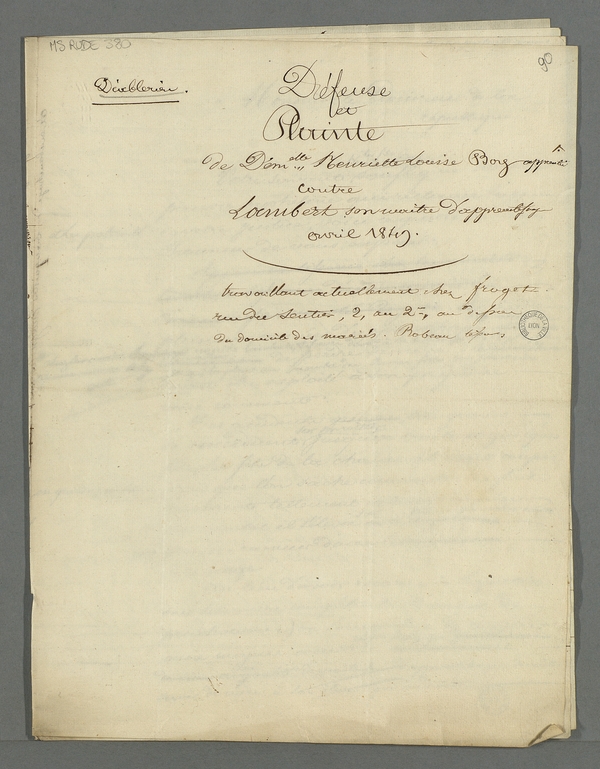 MS RUDE 380
90
Défense
et
Plainte
de Demlle Henriette Louise Borg
contre
Lambert son maître d'apprentissage
avril 1849.
travaillant actuellement chez frogot
rue du Sentier, 2, au 2e, au dessus
du domicile des mariés. Robeau